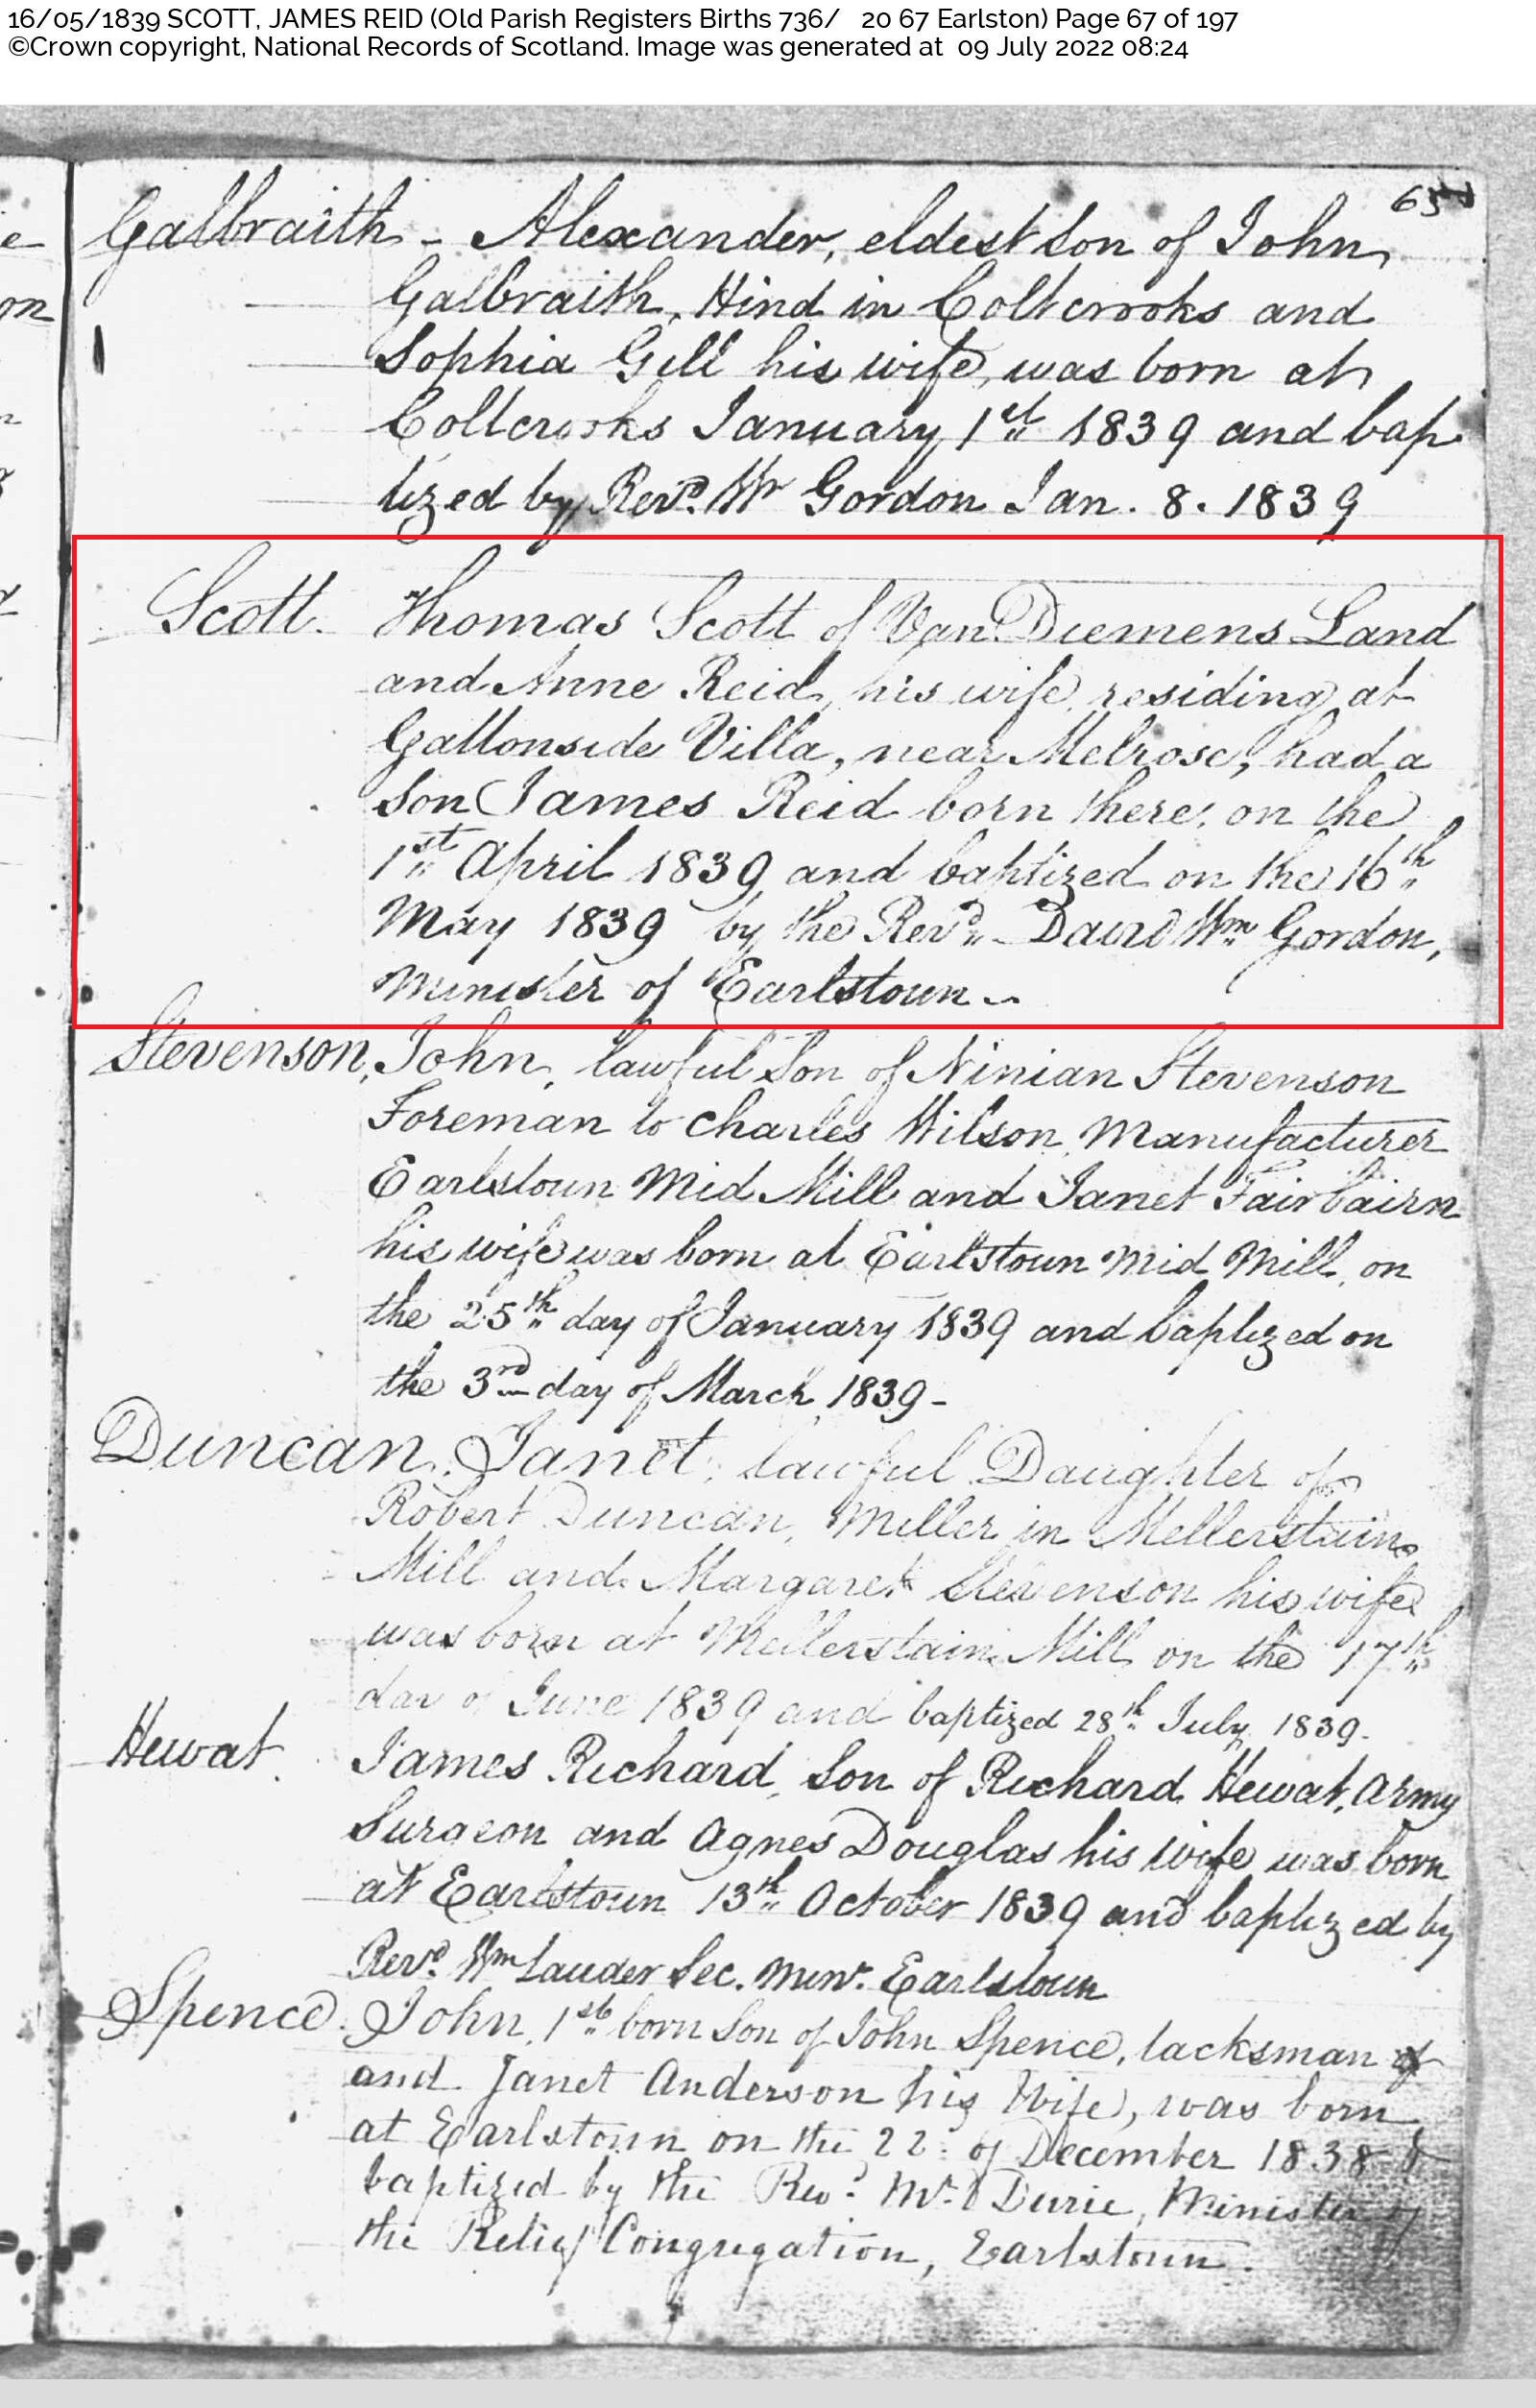 16/05/1839 SCOTT, JAMES REID (Old Parish Registers Births 736/ 20 67 Earlston) Page 67 of 197
©Crown copyright, National Records of Scotland. Image was generated at 09 July 2022 08:24
65
Galbraith - Alexander, eldest Son of John
Galbraith, Hind in Coltcrooks and
Sophia Gill his wife, was born at
Coltcrooks January 1st 1839 and bap
tized by Revd. Wm Gordon Jan. 8. 1839
Scott. Thomas Scott of Van Diemens Land
and Anne Reid, his wife, residing at
Gattonside Villa, near Melrose, had a
Son James Reid born there, on the
1st April 1839 and baptized on the 16th
May 1839 by the Revd. David Wm Gordon,
Minister of Earlstoun.
Stevenson, John, lawful Son of Ninian Stevenson
Foreman to Charles Wilson, Manufacturer
Earlstoun Mid Mill and Janet Fairbairn
his wife was born at Earlstoun Mid Mill, on
the 25th day of January 1839 and baptized on
the 3rd day of March 1839 -
Duncan. Janet, lawful Daughter of
Robert Duncan, Miller in Mellerstain
Mill and Margaret Stevenson his wife
was born at Mellerstain Mill on the 17th
day of June 1839 and baptized 28th July, 1839.
Hewat. James Richard, Son of Richard Hewat, Army
Surgeon and Agnes Douglas his wife was born
at Earlstoun 13th October 1839 and baptized by
Revd. Wm Lauder Sec. Minr. Earlstoun
Spence. John, 1st born Son of John Spence, tacksman
and Janet Anderson his Wife, was born
at Earlstoun on the 22d of December 1838 &
baptized by the Revd Mr. Durie, Minister of
the Relief Congregation, Earlstoun.